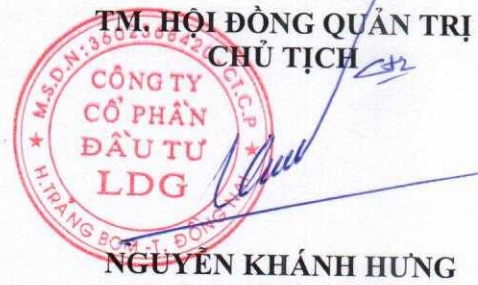 TM. HỘI ĐỒNG QUẢN TRỊ
CHỦ TỊCH
M.S.D.N: C.T.C.P
CÔNG TY
CỔ PHẦN
ĐẦU TƯ
LDG
H.TRẢNG BOM -T. ĐỒNG NAI
NGUYỄN KHÁNH HƯNG